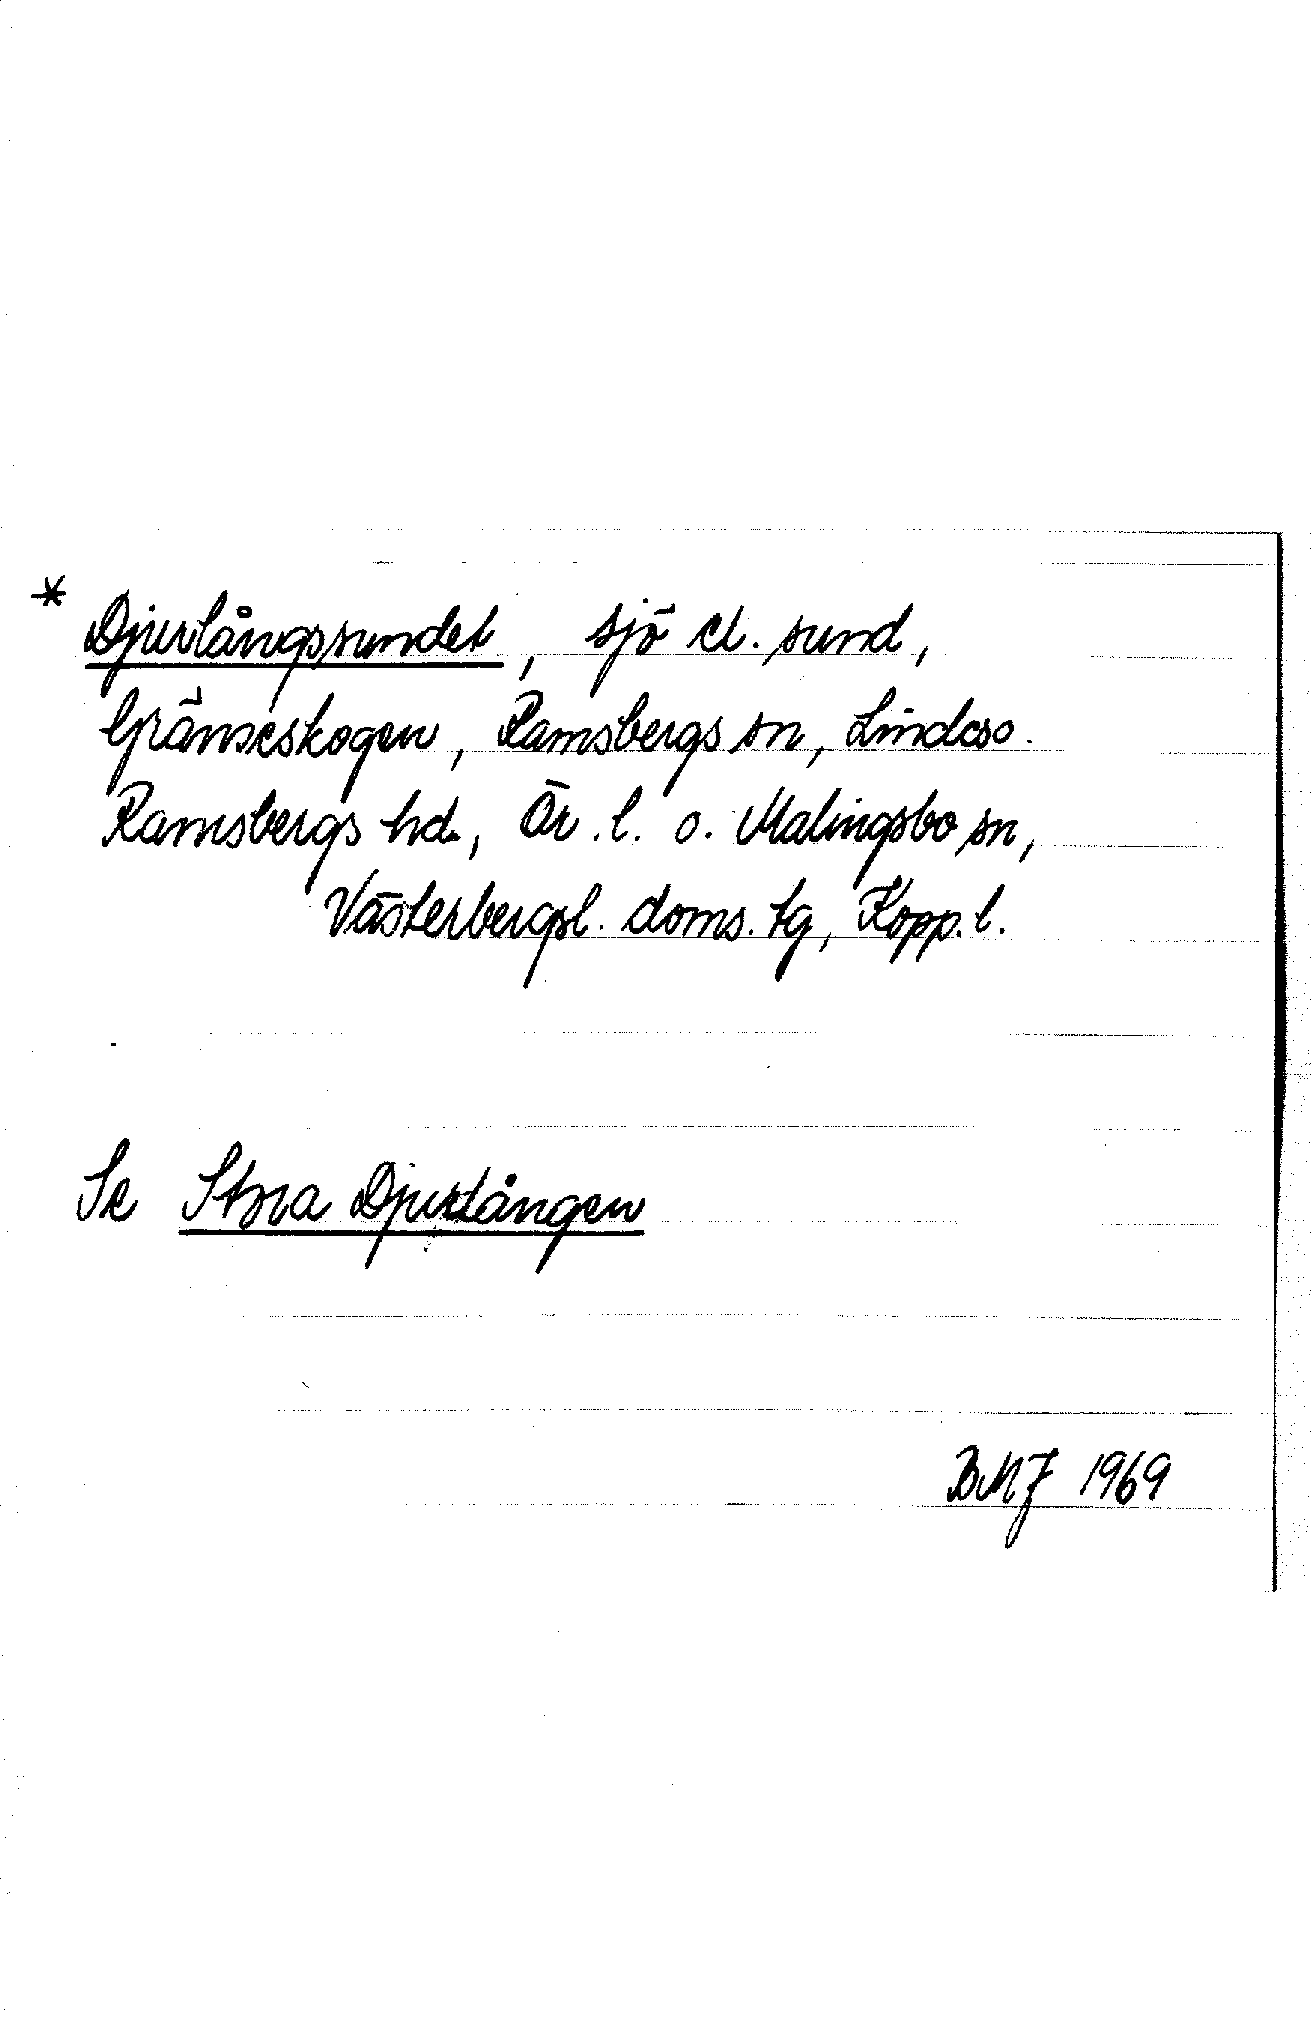 * Djurlångssundet, sjö el. sund,
Gränsskogen, Ramsbergs sn, Lindes o.
Ramsbergs hd., Ör. l. o. Malingsbo sn,
Västerbergsl. doms. tg, Kopp. l.
Se Stora Djurlången
BMJ 1969